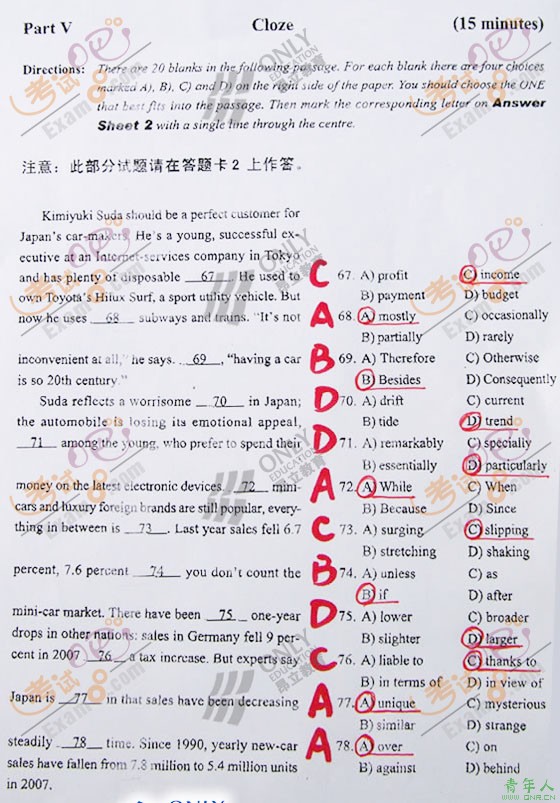 Part V Cloze (15 minutes)
Directions: There are 20 blanks in the following passage. For each blank there are four choices
marked A), B), C) and D) on the right side of the paper. You should choose the ONE
that best fits into the passage. Then mark the corresponding letter on Answer
Sheet 2 with a single line through the centre.
注意：此部分试题请在答题卡 2 上作答。
Kimiyuki Suda should be a perfect customer for
Japan's car-makers. He's a young, successful ex-
ecutive at an Internet-services company in Tokyo
and has plenty of disposable 67 . He used to
own Toyota's Hilux Surf, a sport utility vehicle. But
now he uses 68 subways and trains. "It's not
inconvenient at all," he says. 69 , "having a car
is so 20th century."
Suda reflects a worrisome 70 in Japan;
the automobile is losing its emotional appeal,
71 among the young, who prefer to spend their
money on the latest electronic devices. 72 mini-
cars and luxury foreign brands are still popular, every-
thing in between is 73 . Last year sales fell 6.7
percent, 7.6 percent 74 you don't count the
mini-car market. There have been 75 one-year
drops in other nations: sales in Germany fell 9 per-
cent in 2007 76 a tax increase. But experts say
Japan is 77 in that sales have been decreasing
steadily 78 time. Since 1990, yearly new-car
sales have fallen from 7.8 million to 5.4 million units
in 2007.
C 67. A) profit C) income
B) payment D) budget
A 68. A) mostly C) occasionally
B) partially D) rarely
B 69. A) Therefore C) Otherwise
B) Besides D) Consequently
D 70. A) drift C) current
B) tide D) trend
D 71. A) remarkably C) specially
B) essentially D) particularly
A 72. A) While C) When
B) Because D) Since
C 73. A) surging C) slipping
B) stretching D) shaking
B 74. A) unless C) as
B) if D) after
D 75. A) lower C) broader
B) slighter D) larger
C 76. A) liable to C) thanks to
B) in terms of D) in view of
A 77. A) unique C) mysterious
B) similar D) strange
A 78. A) over C) on
B) against D) behind
考试吧
Exam8.com
ONLY
EDUCATION
昂立教育
青年人
WWW.QNR.CN